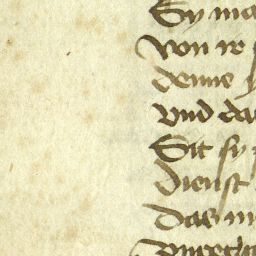 Sy ma
Von ir
denne
Vnd da
Sit sy
Dienst
Das